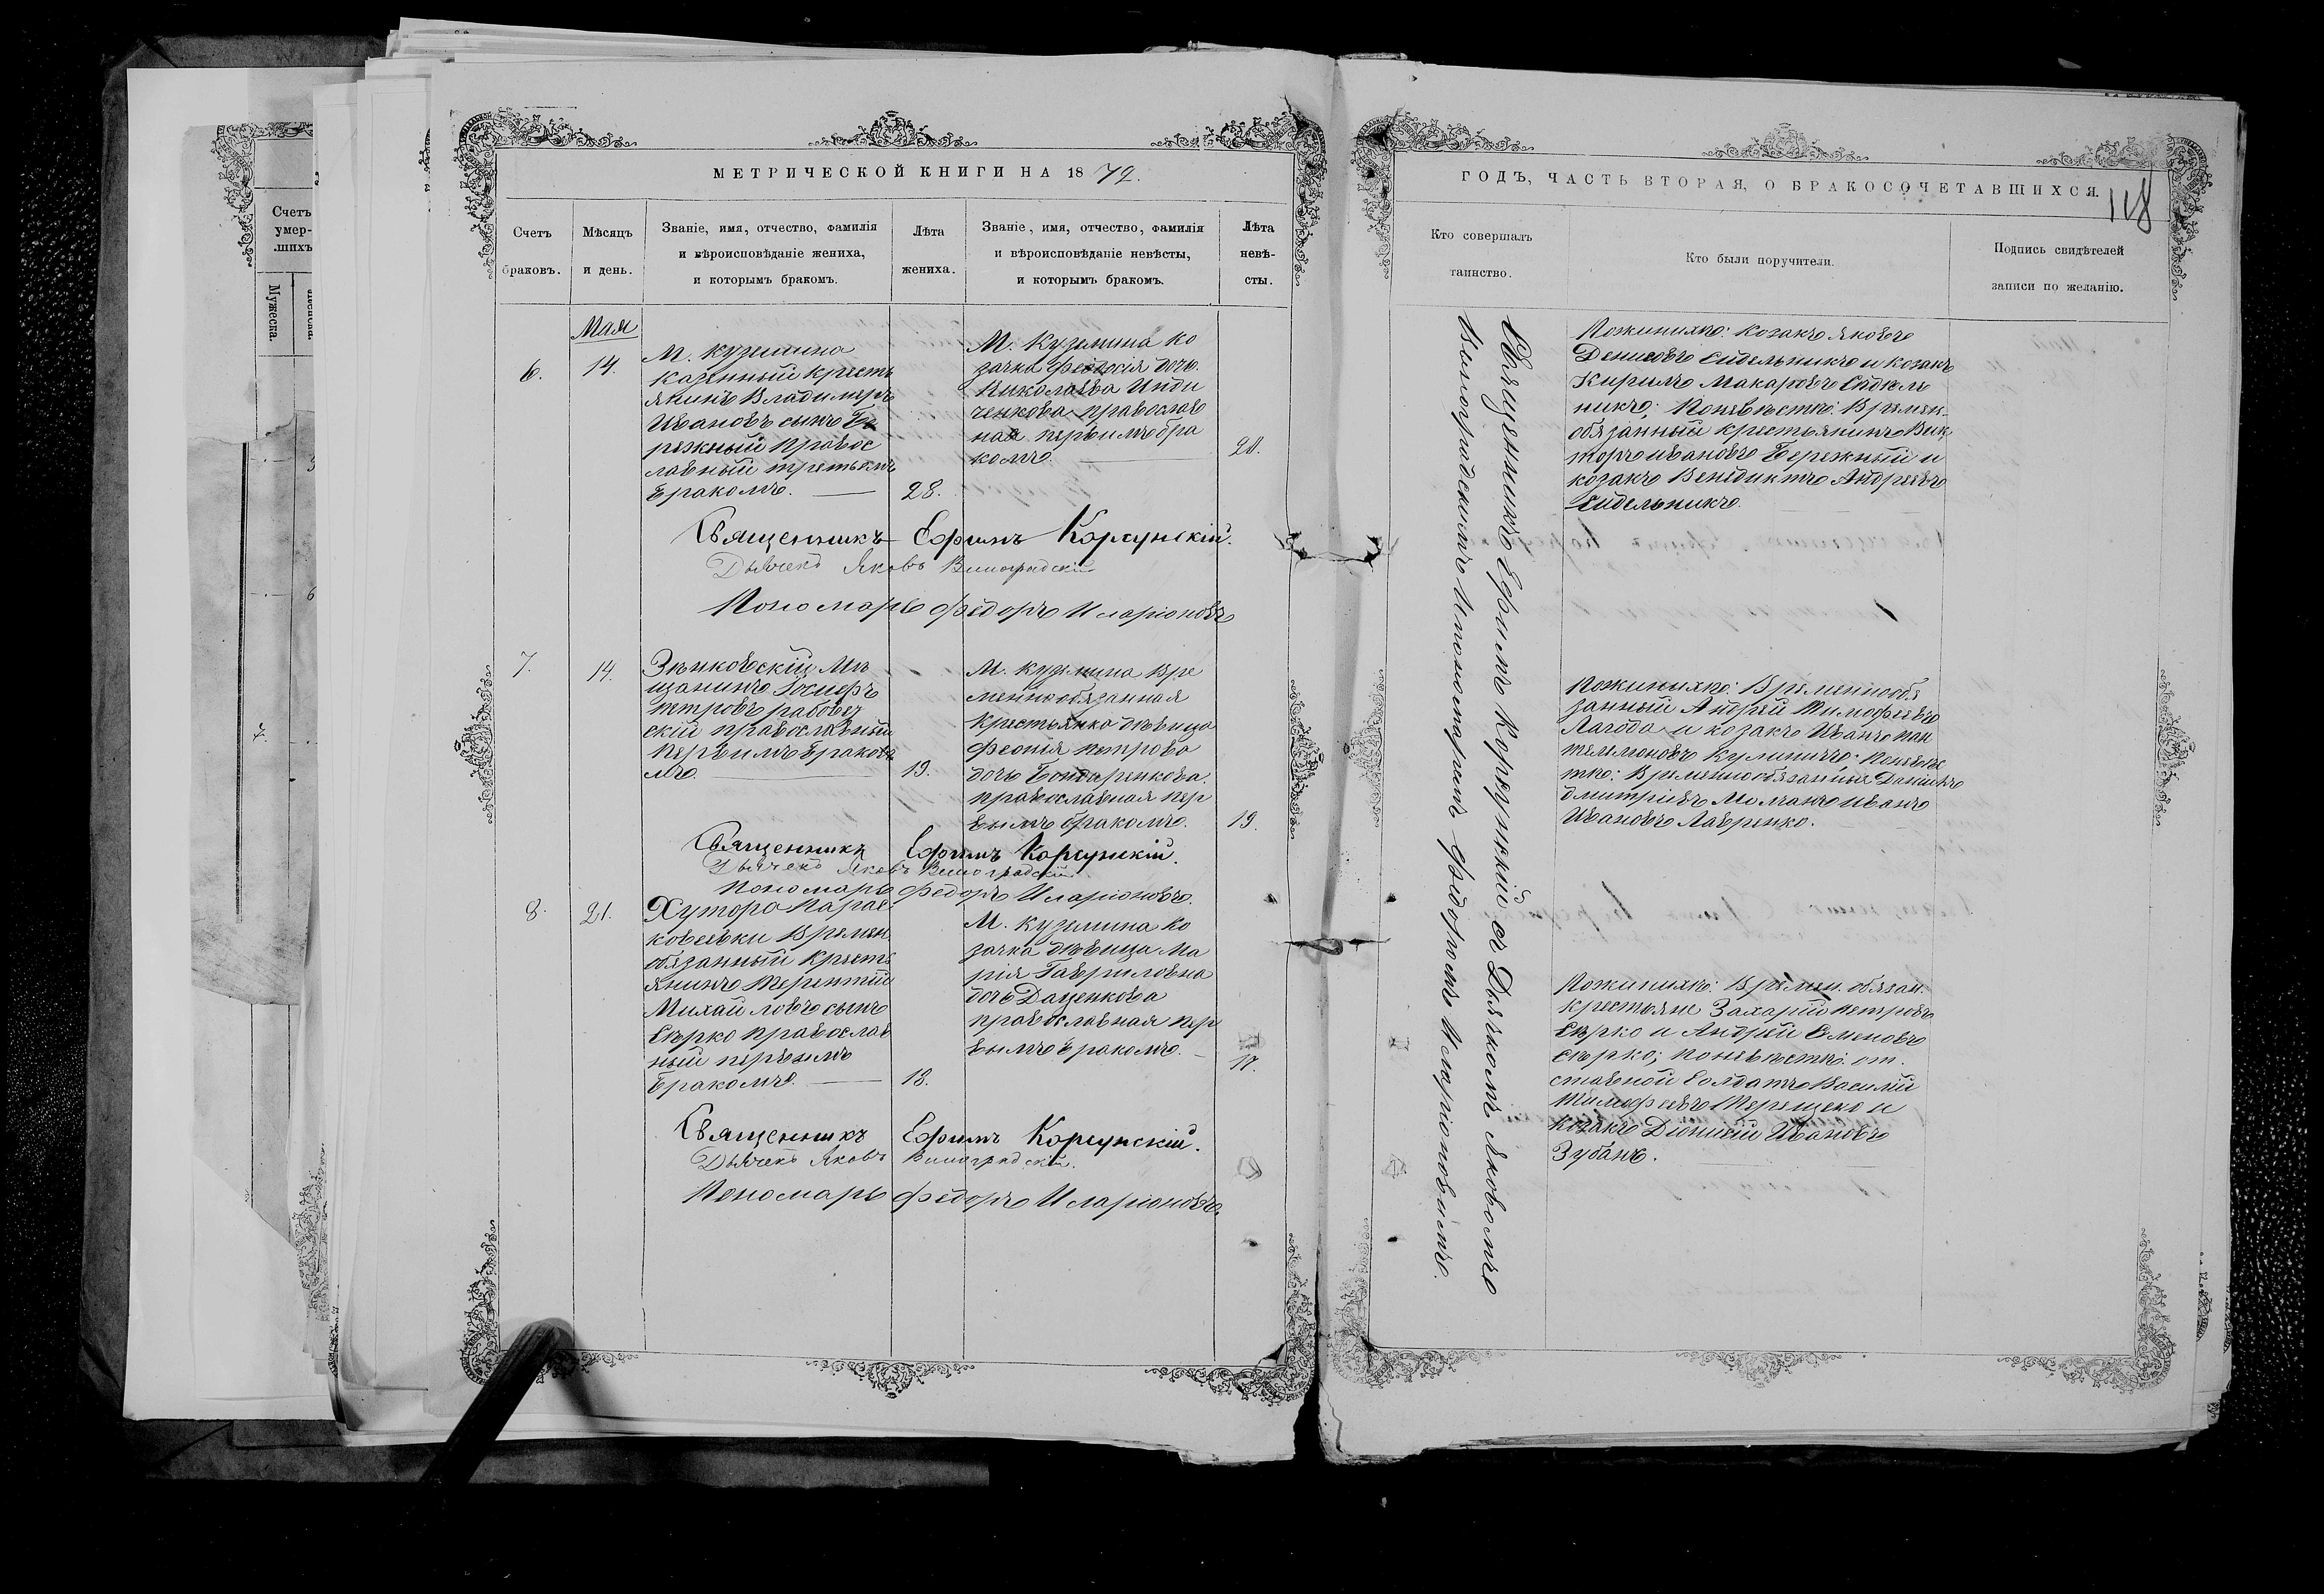 МЕТРИЧЕСКОЙ КНИГИ НА 1872.
Счетъ браковъ.
Мѣсяцъ и день.
Званіе, имя, отчество, фамилія
и вѣроисповѣданіе жениха,
и которымъ бракомъ.
Лѣта жениха.
Званіе, имя, отчество, фамилія
и вѣроисповѣданіе невѣсты,
и которымъ бракомъ.
Лѣта невѣ-
сты.
Мая
6.
14.
М. Кузмина
казенный кресть
янинъ Владимеръ
Ивановъ сынъ Бе
режный правос
лавный третьимъ
бракомъ.
28.
М. Кузмина ко
зачка Феодосія дочь
Николаева Инди
ченкова православ
ная первымъ бра
комъ.
20.
Священникъ Ефимъ Корсунскій.
Дьячекъ Яковъ Виноградскій
Пономарь Федоръ Иларіоновъ
7.
14.
Зѣньковскій мѣ
щанинъ Іосифъ
Петровъ
скій православный
первымъ браком
мъ.
19.
М. Кузмина вре
менно обязанная
крестьянка дѣвица
Феонія Петрова
дочь Бондаренкова
православная пер
вымъ бракомъ.
19.
Священникъ Ефимъ Корсунскій.
Дьячекъ Яковъ Виноградскій
Пономарь Федоръ Иларіоновъ.
8.
21.
Хутора Парас
ковеевки времен
обязанный кресть
янинъ Терентій
Михайловъ сынъ
Сѣрко православ
ный первымъ
бракомъ.
18.
М. Кузмина ко
зачка дѣвица Ма
рія Гавриловна
дочь Даценкова
православная пер
вымъ бракомъ.
17.
Священникъ Ефимъ Корсунскій.
Дьячекъ Яковъ Виноградскій.
Пономарь Федоръ Иларіоновъ.
Счетъ
умер-
шихъ
Мужеска
7.
6
ГОДЪ, ЧАСТЬ ВТОРАЯ, О БРАКОСОЧЕТАВШИХСЯ.
118
Кто совершалъ
таинство.
Кто были поручители.
Подпись свидѣтелей
записи по желанію.
Священникъ Ефимъ Корсунскій съ Дьячкомъ Яковомъ
Виноградскимъ и пономаремъ Федоромъ Иларіоновымъ.
Пожинихѣ: козакъ Яковъ
Денисовъ Сидельникъ и козакъ
Кирилъ Макаровъ Сидель
никъ; Поневѣстѣ: Времен-
обязанный крестьянинъ Вик
торъ Ивановъ Бережный и
козакъ Венедиктъ Андреевъ
Сидельникъ.
Пожинихѣ: Временнообя
занный Андрей Тимофеевъ
Лагода и козакъ Иванъ Пан
телимоновъ Кулиничъ; Поневѣс
тѣ: Временнообязанные Даніилъ
Дмитріевъ Иванъ
Ивановъ Лавренко.
Пожинихѣ: Времен. обязан.
крестьяне Захарій Петровъ
Сѣрко и Андрей Семеновъ
Сѣрко; Поневѣстѣ: от
ставной солдатъ Василій
Тимофеевъ Терещенко и
козакъ Діонисій Ивановъ
Зубанъ.